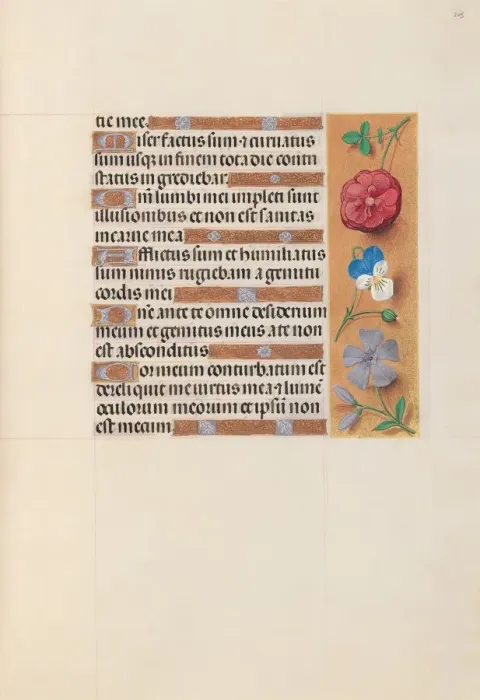 tie mee.
Miser factus sum ⁊ curuatus
sum usq; in finem tota die contri
status in grediebar.
Qm̄ lumbi mei impleti sunt
illusionibus et non est sanitas
in carne mea
Afflictus sum et humiliatus
sum nimis rugiebam a gemitu
cordis mei
Dn̄e ante te omne desiderium
meum et gemitus meus a te non
est absconditus
Cor meum conturbatum est
dereliquit me uirtus mea ⁊ lumē
oculorum meorum et ipsū non
est mecum.